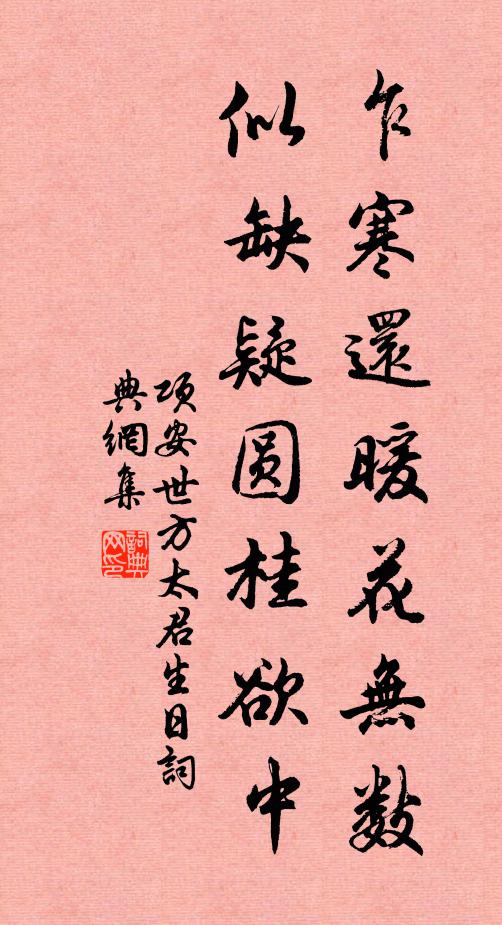 乍寒還暖花無數
似缺疑圆桂欲中
项安世方太君生日詞
典網集
詞典
网印